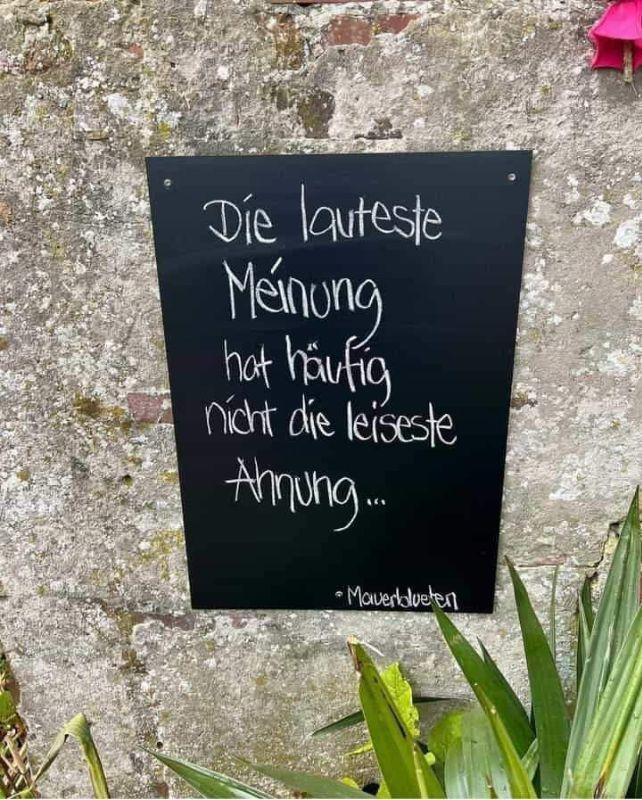 Die lauteste
Meinung
hat häufig
nicht die leiseste
Ahnung...
Mauerblueten